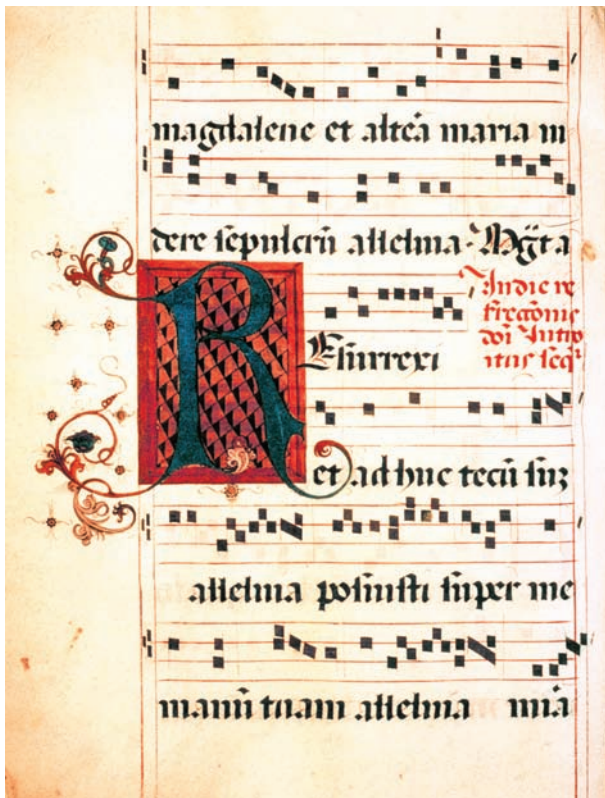 magdalene et altea maria vi
dere sepulcrū alleluia. Mgt a
In die re
surectionis
doi Intro
itus seqr
Resurrexi
et ad huc tecū suz
alleluia posuisti super me
manū tuam alleluia mia